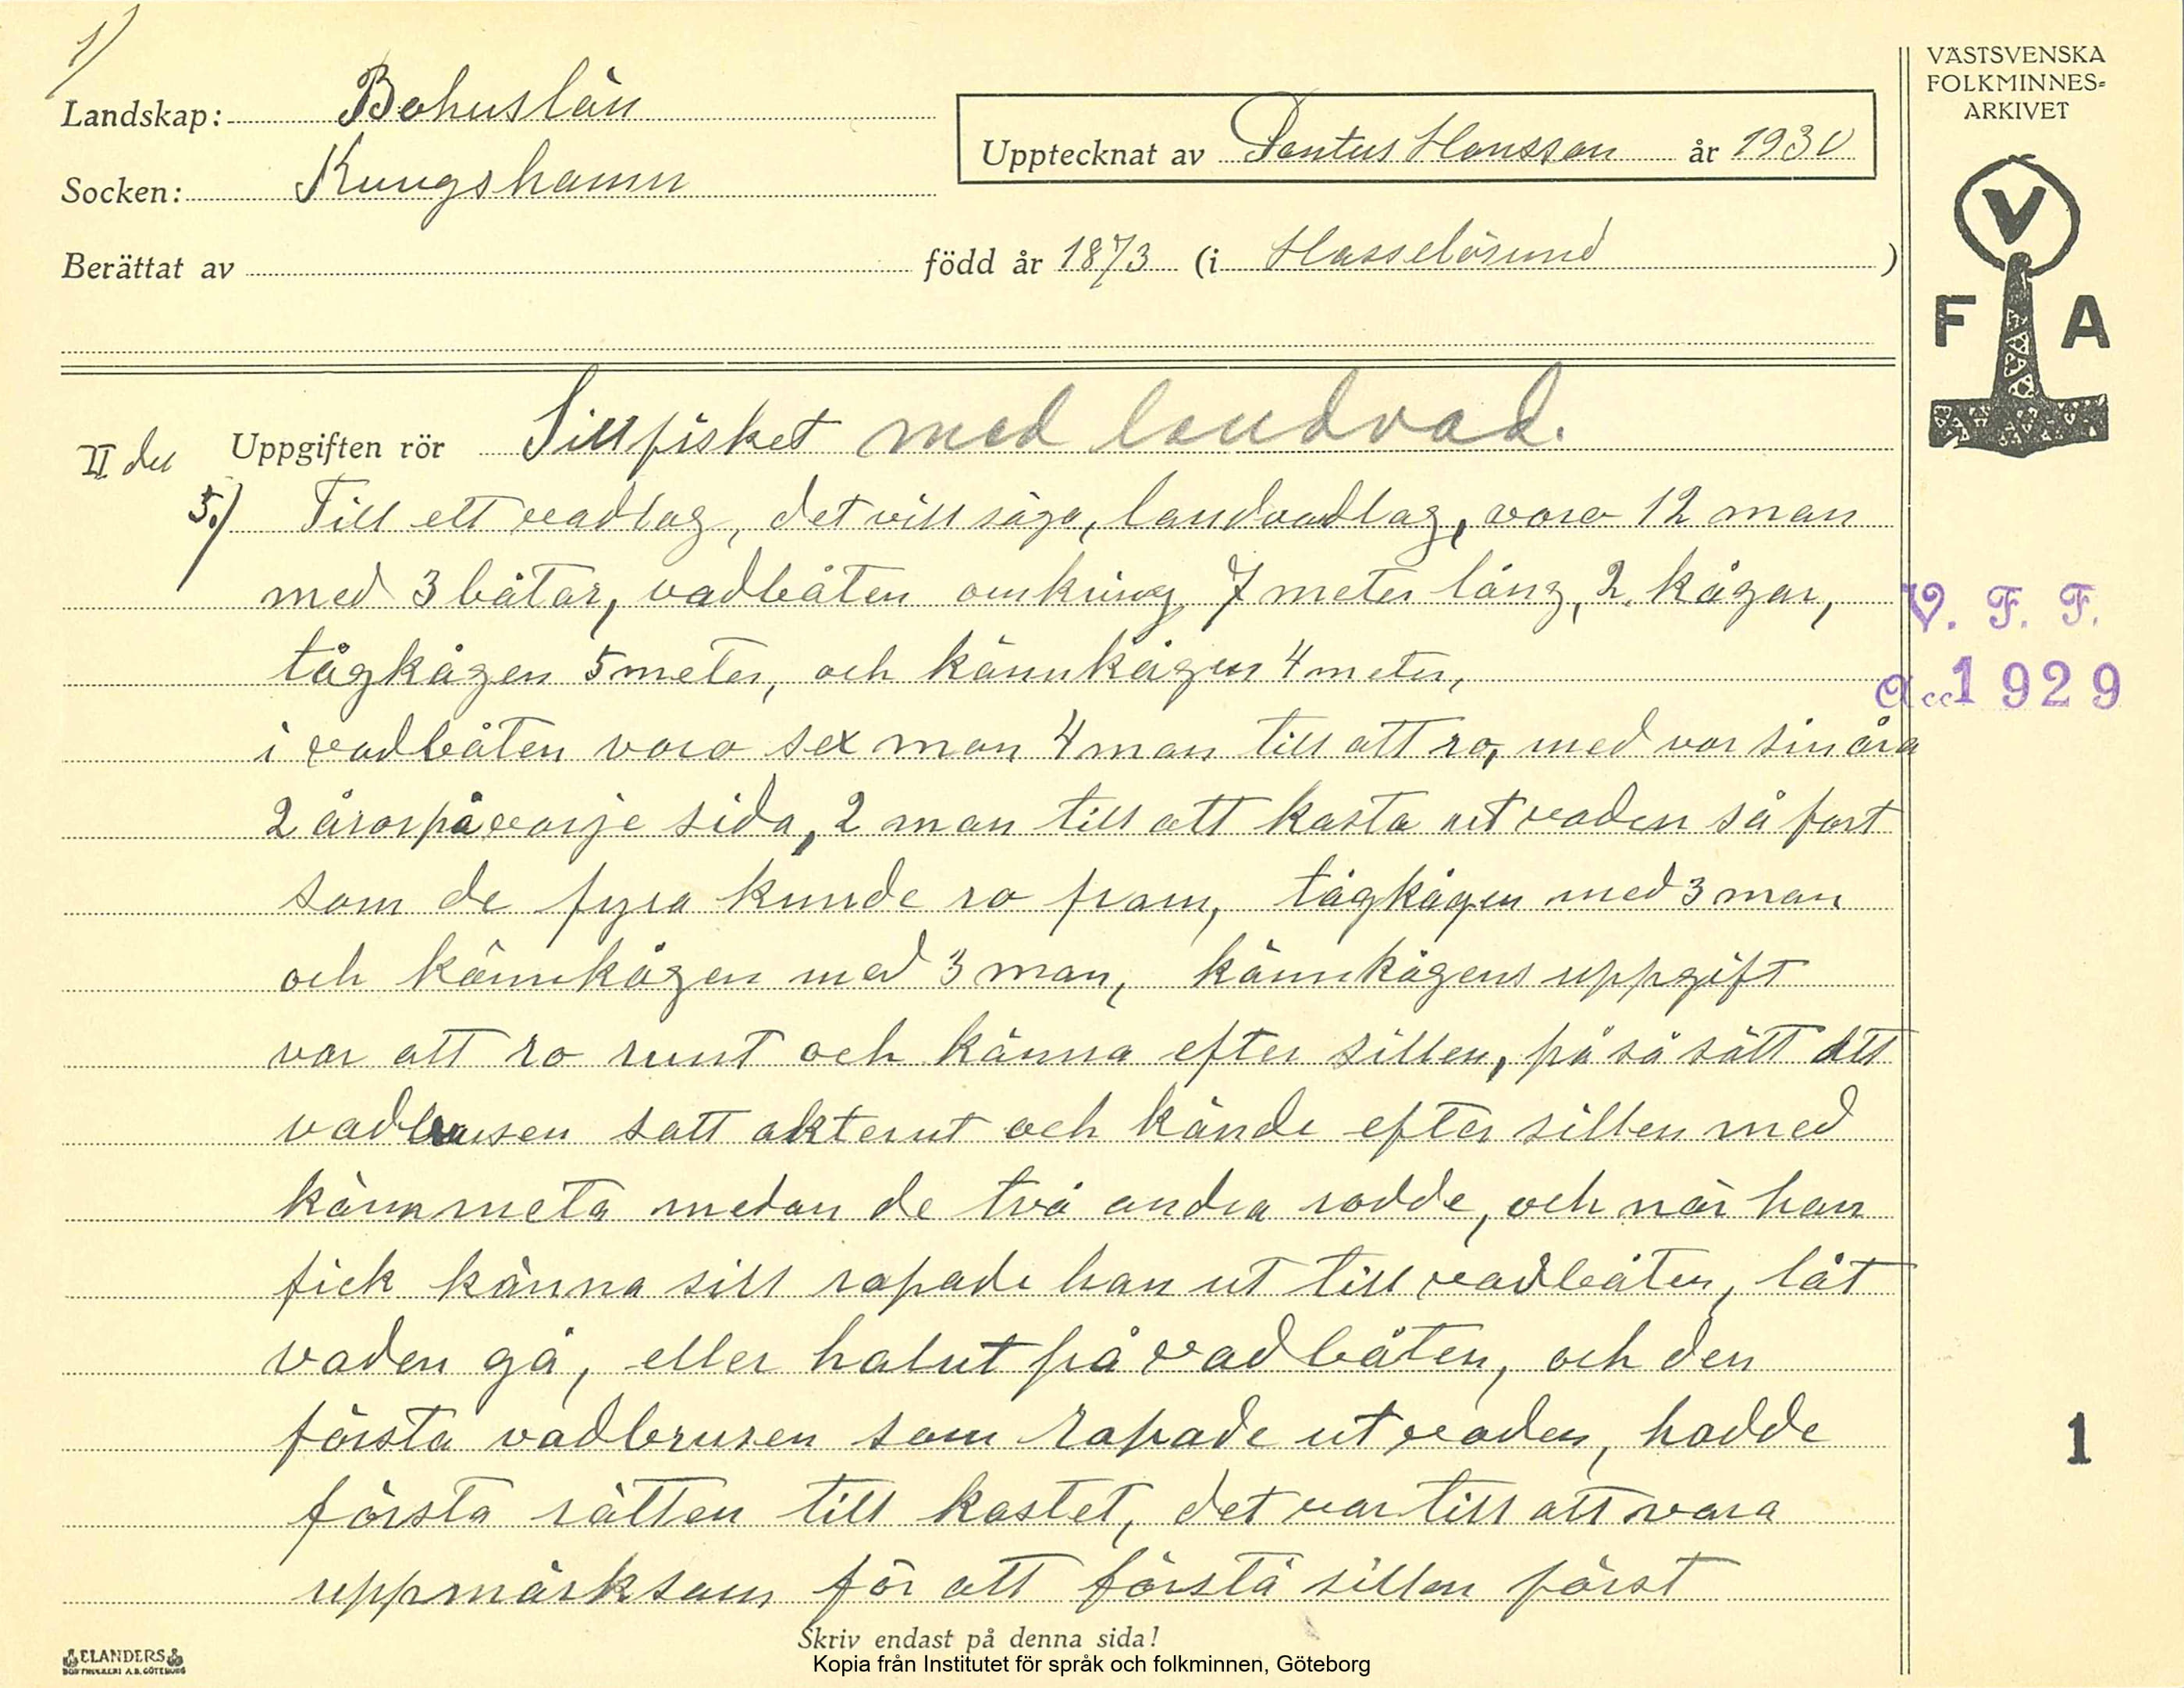 1/
Landskap: Bohuslän
Socken: Kungshamn
Berättat av
Upptecknat av Pontus Hansson år 1930
född år 1873 (i Hasselösund )
VÄSTSVENSKA
FOLKMINNES-
ARKIVET
V
F A
II del Uppgiften rör Sillfisket med landvad.
5.) Till ett vadlag, det vill säga, landvadlag, voro 12 man
med 3 båtar, vadbåten omkring 7 meter lång, 2 kågar,
tågkågen 5 meter, och kännkågen 4 meter,
i vadbåten voro sex man 4 man till att ro, med var sin åra
2 åror på varje sida, 2 man till att kasta ut vaden så fort
som de fyra kunde ro fram, tågkågen med 3 man
och kännkågen med 3 man, kännkågens uppgift
var att ro runt och känna efter sillen, på så sätt att
vadbrusen satt akterut och kände efter sillen med
kännmeta medan de två andra rodde, och när han
fick känna sill ropade han ut till vadbåten, låt
vaden gå, eller halut på vadbåten, och den
första vadbrusen som ropade ut vaden, hadde
första rätten till kastet, det var till att vara
uppmärksam för att förstå sillen först
V. F. F.
Acc 1929
1
Skriv endast på denna sida!
ELANDERS
BOKTRYCKERI A.B. GÖTEBORG
Kopia från Institutet för språk och folkminnen, Göteborg